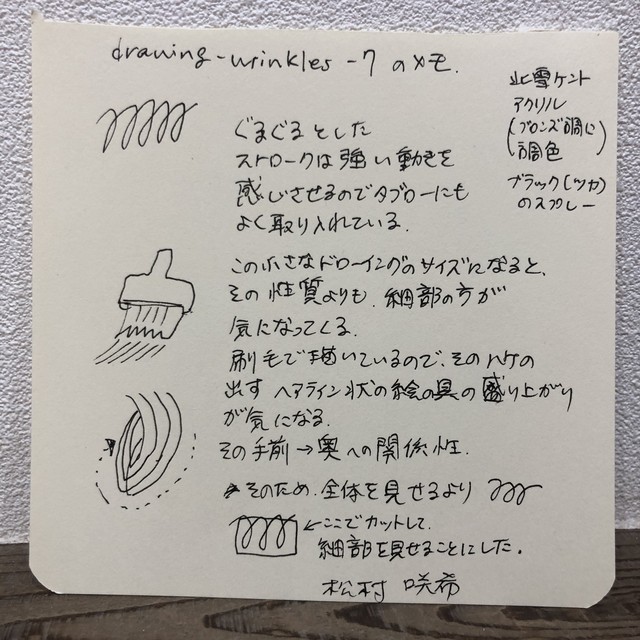 drawing-wrinkles-7 のメモ.
ぐるぐるとした
ストロークは強い動きを
感じさせるのでタブローにも
よく取り入れている.
この小さなドローイングのサイズになると、
その性質よりも、細部の方が
気になってくる.
刷毛で描いているので、そのハケの
出す ヘアライン状の絵の具の盛り上がり
が気になる.
その手前→奥への関係性.
そのため、全体を見せるより
←ここでカットして、
細部を見せることにした.
松村 咲希
北雪ケント
アクリル
(ブロンズ調に
調色)
ブラック(ツヤ)
のスプレー